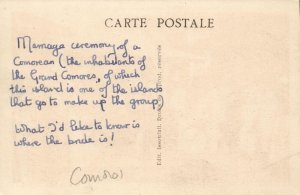 CARTE POSTALE
Mamaya ceremony of a
Comorean (the inhabitants of
the Grand Comores, of which
this island is one of the islands
that go to make up the group)
What I'd like to know is
where the bride is!
Comores
Edit.
réservés